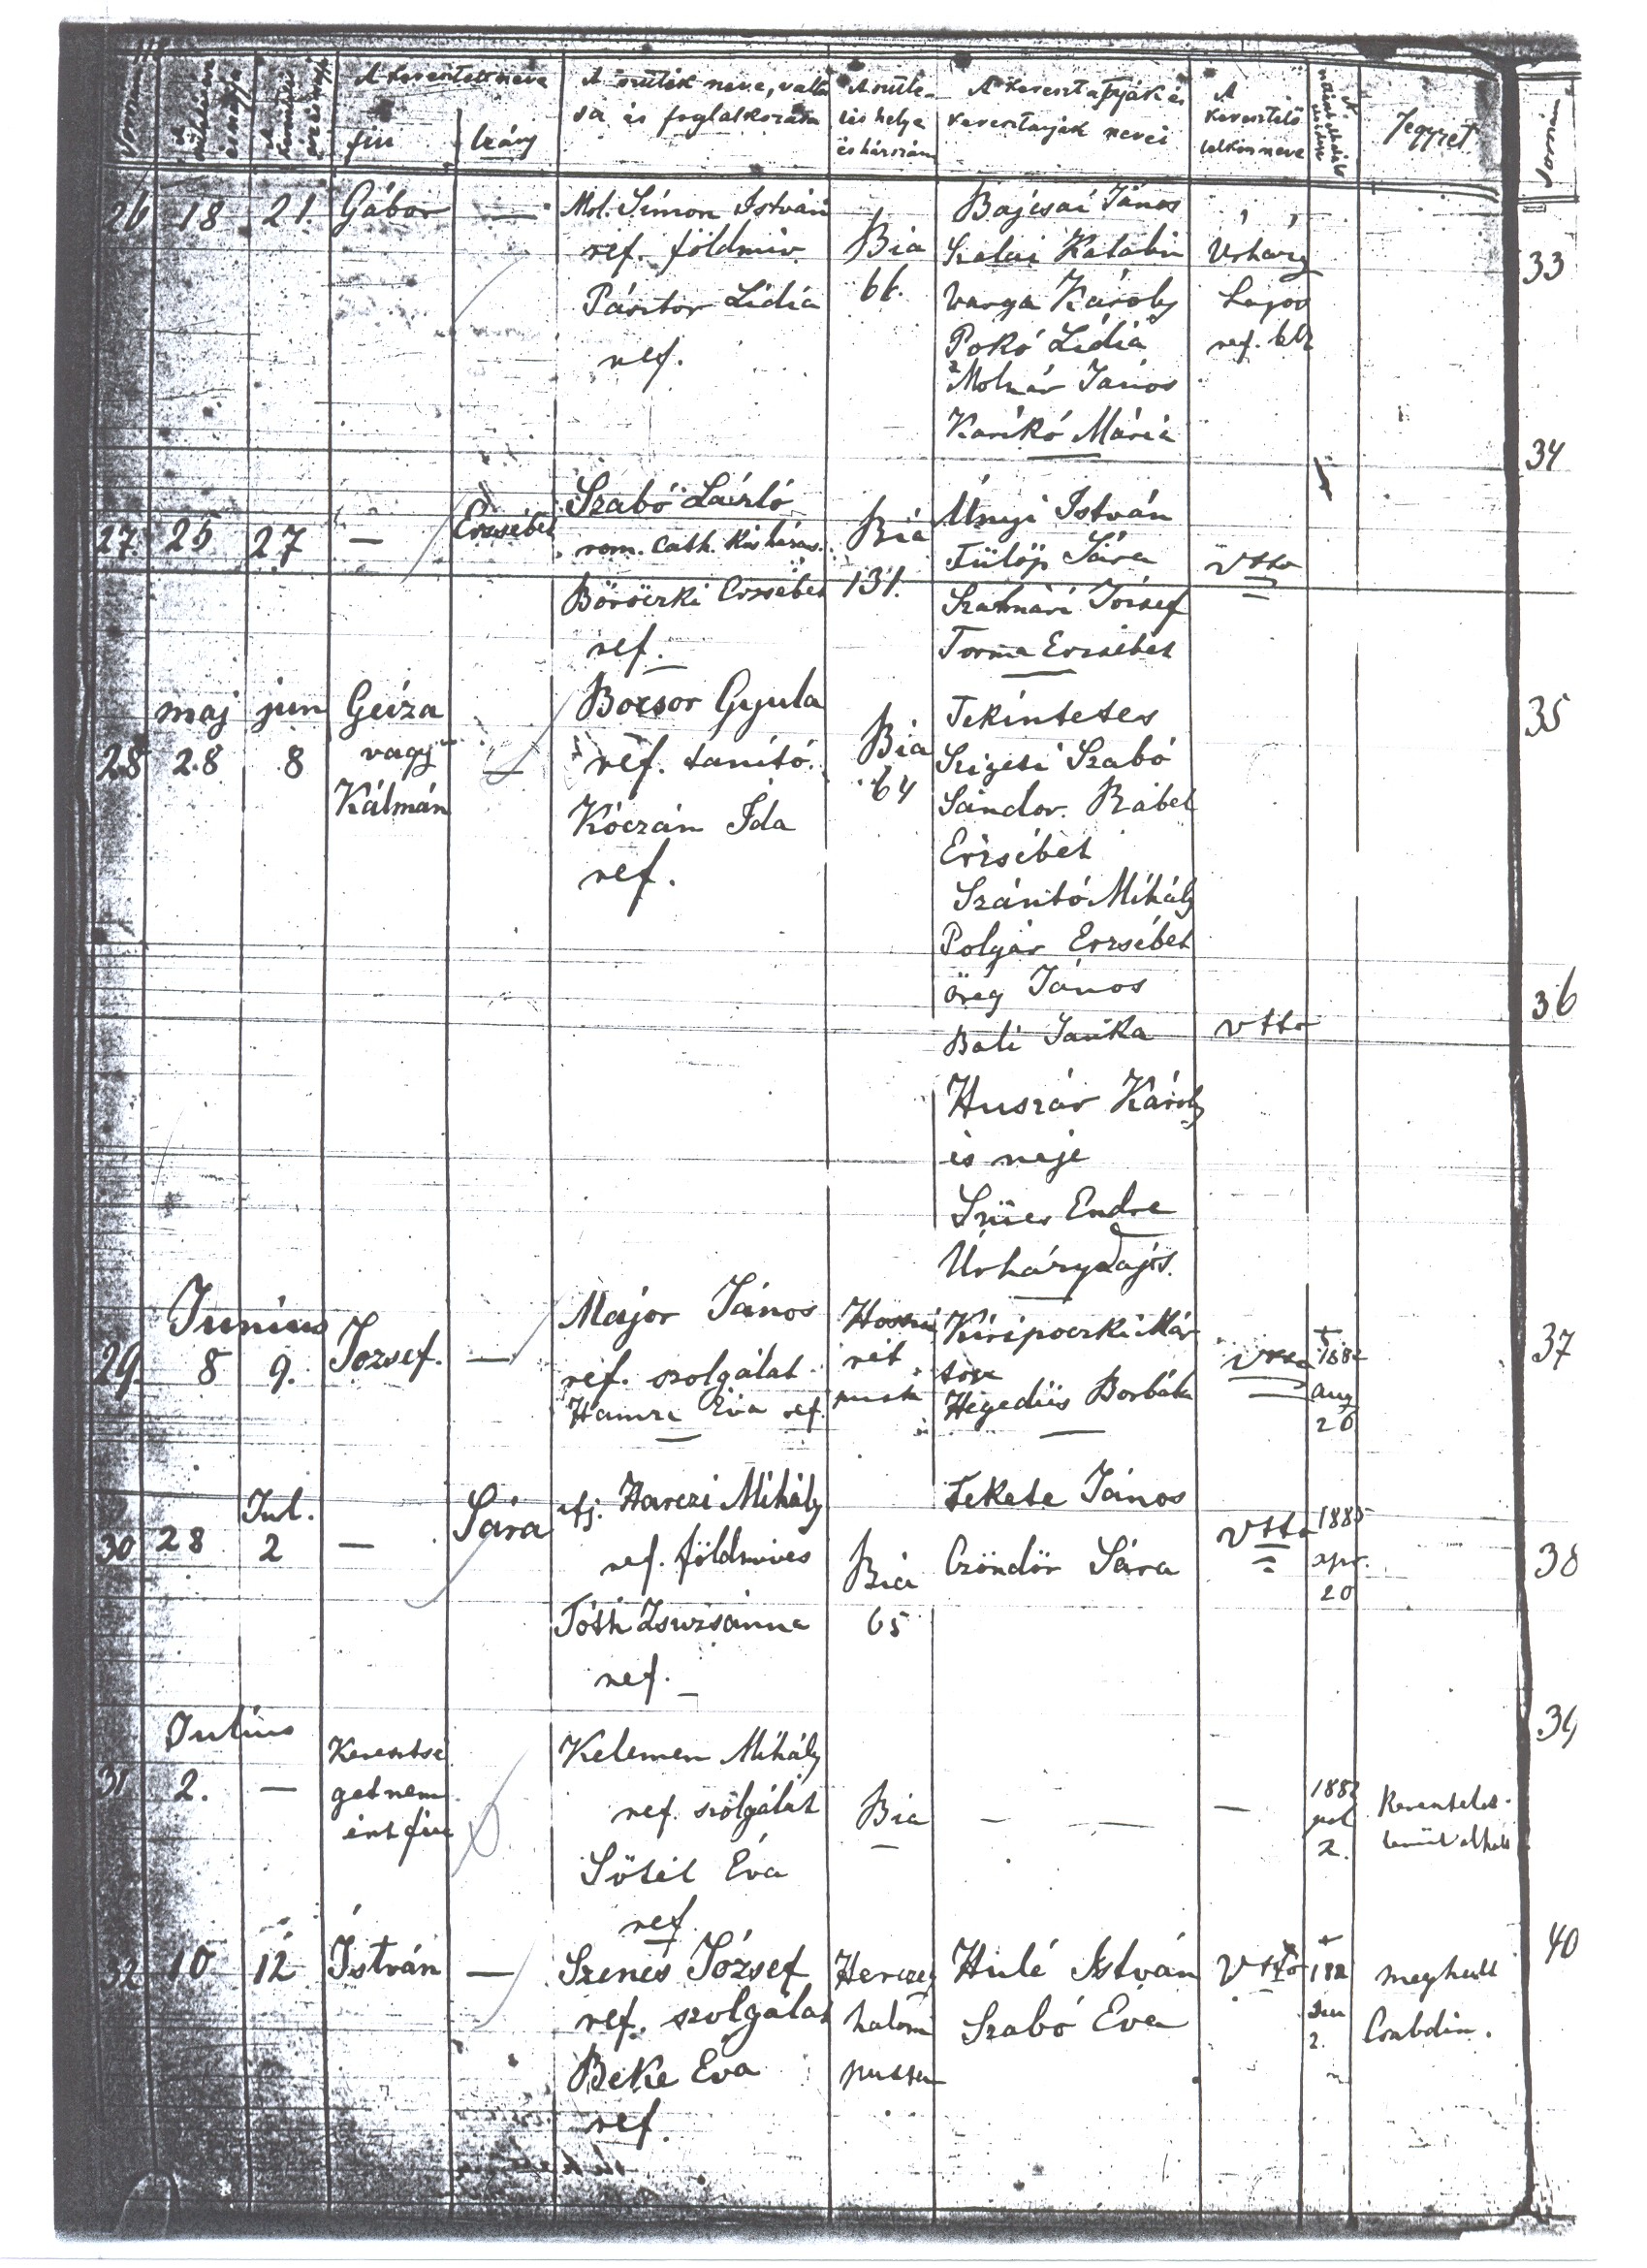 A keresztelt neve
A szülék neve, vallá
A szüle-
A keresztapják és
A
Jegyzet
Sorszám
fiú
leány
sa és foglalkozása
tés helye
keresztanják nevei
keresztelő
és házszám
lelkész neve
26 18 21. Gábor —
Mol. Simon István
ref. földmiv.
Pásztor Lidia
ref.
Bia
66.
Bajcsai János
Szalai Katalin
Varga Károly
Pokó Lídia
Molnár János
Karikó Mária
Úrházy
Lajos
ref. lelk
33
34
27 25 27 — Erzsébet
Szabó László
rom. cath. kisházas.
Böröczki Erzsébet
ref.
Bia
131.
Ányi István
Fülöp Sára
Szatmári József
Torma Erzsébet
vtto
28 maj 28 jun 8
Géiza
vagy
Kálmán
—
Bozsor Gyula
ref. tanító.
Kóczán Ida
ref.
Bia
64
Tekintetes
Szigeti Szabó
Sándor. Rábel
Erzsébet
Szántó Mihály
Polgár Erzsébet
öreg János
Bali Janka
Huszár Károly
és neje
Szücs Endre
Úrházy Lajos.
vtto
35
36
Junius
29. 8 9. Jozsef. —
Major János
ref. szolgálat
Hamza Éva ref.
Hosszú
rét
puszta
Kiripoczki Már
tona
Hegedüs Borbála
vtto
†
1882
aug
20
37
30 28 Jul. 2 — Sára
ifj. Harczi Mihály
ref. földmives
Tóth Zsuzsánna
ref.
Bia
65
Fekete János
Czöndör Sára
vtto
1885
apr.
20
38
Julius
31 2. —
Keresztsé
get nem
ért fiu
Kelemen Mihály
ref. szolgálat
Sötét Éva
ref
Bia
— —
—
1882
jul
2.
Keresztelet-
lenül elhalt
39
32 10 12 István —
Szencs József
ref. szolgálat
Beke Éva
ref.
Herczeg
halom
puszta
Hulé István
Szabó Éva
vtto
†
188
2.
meghalt
Csabdin.
40